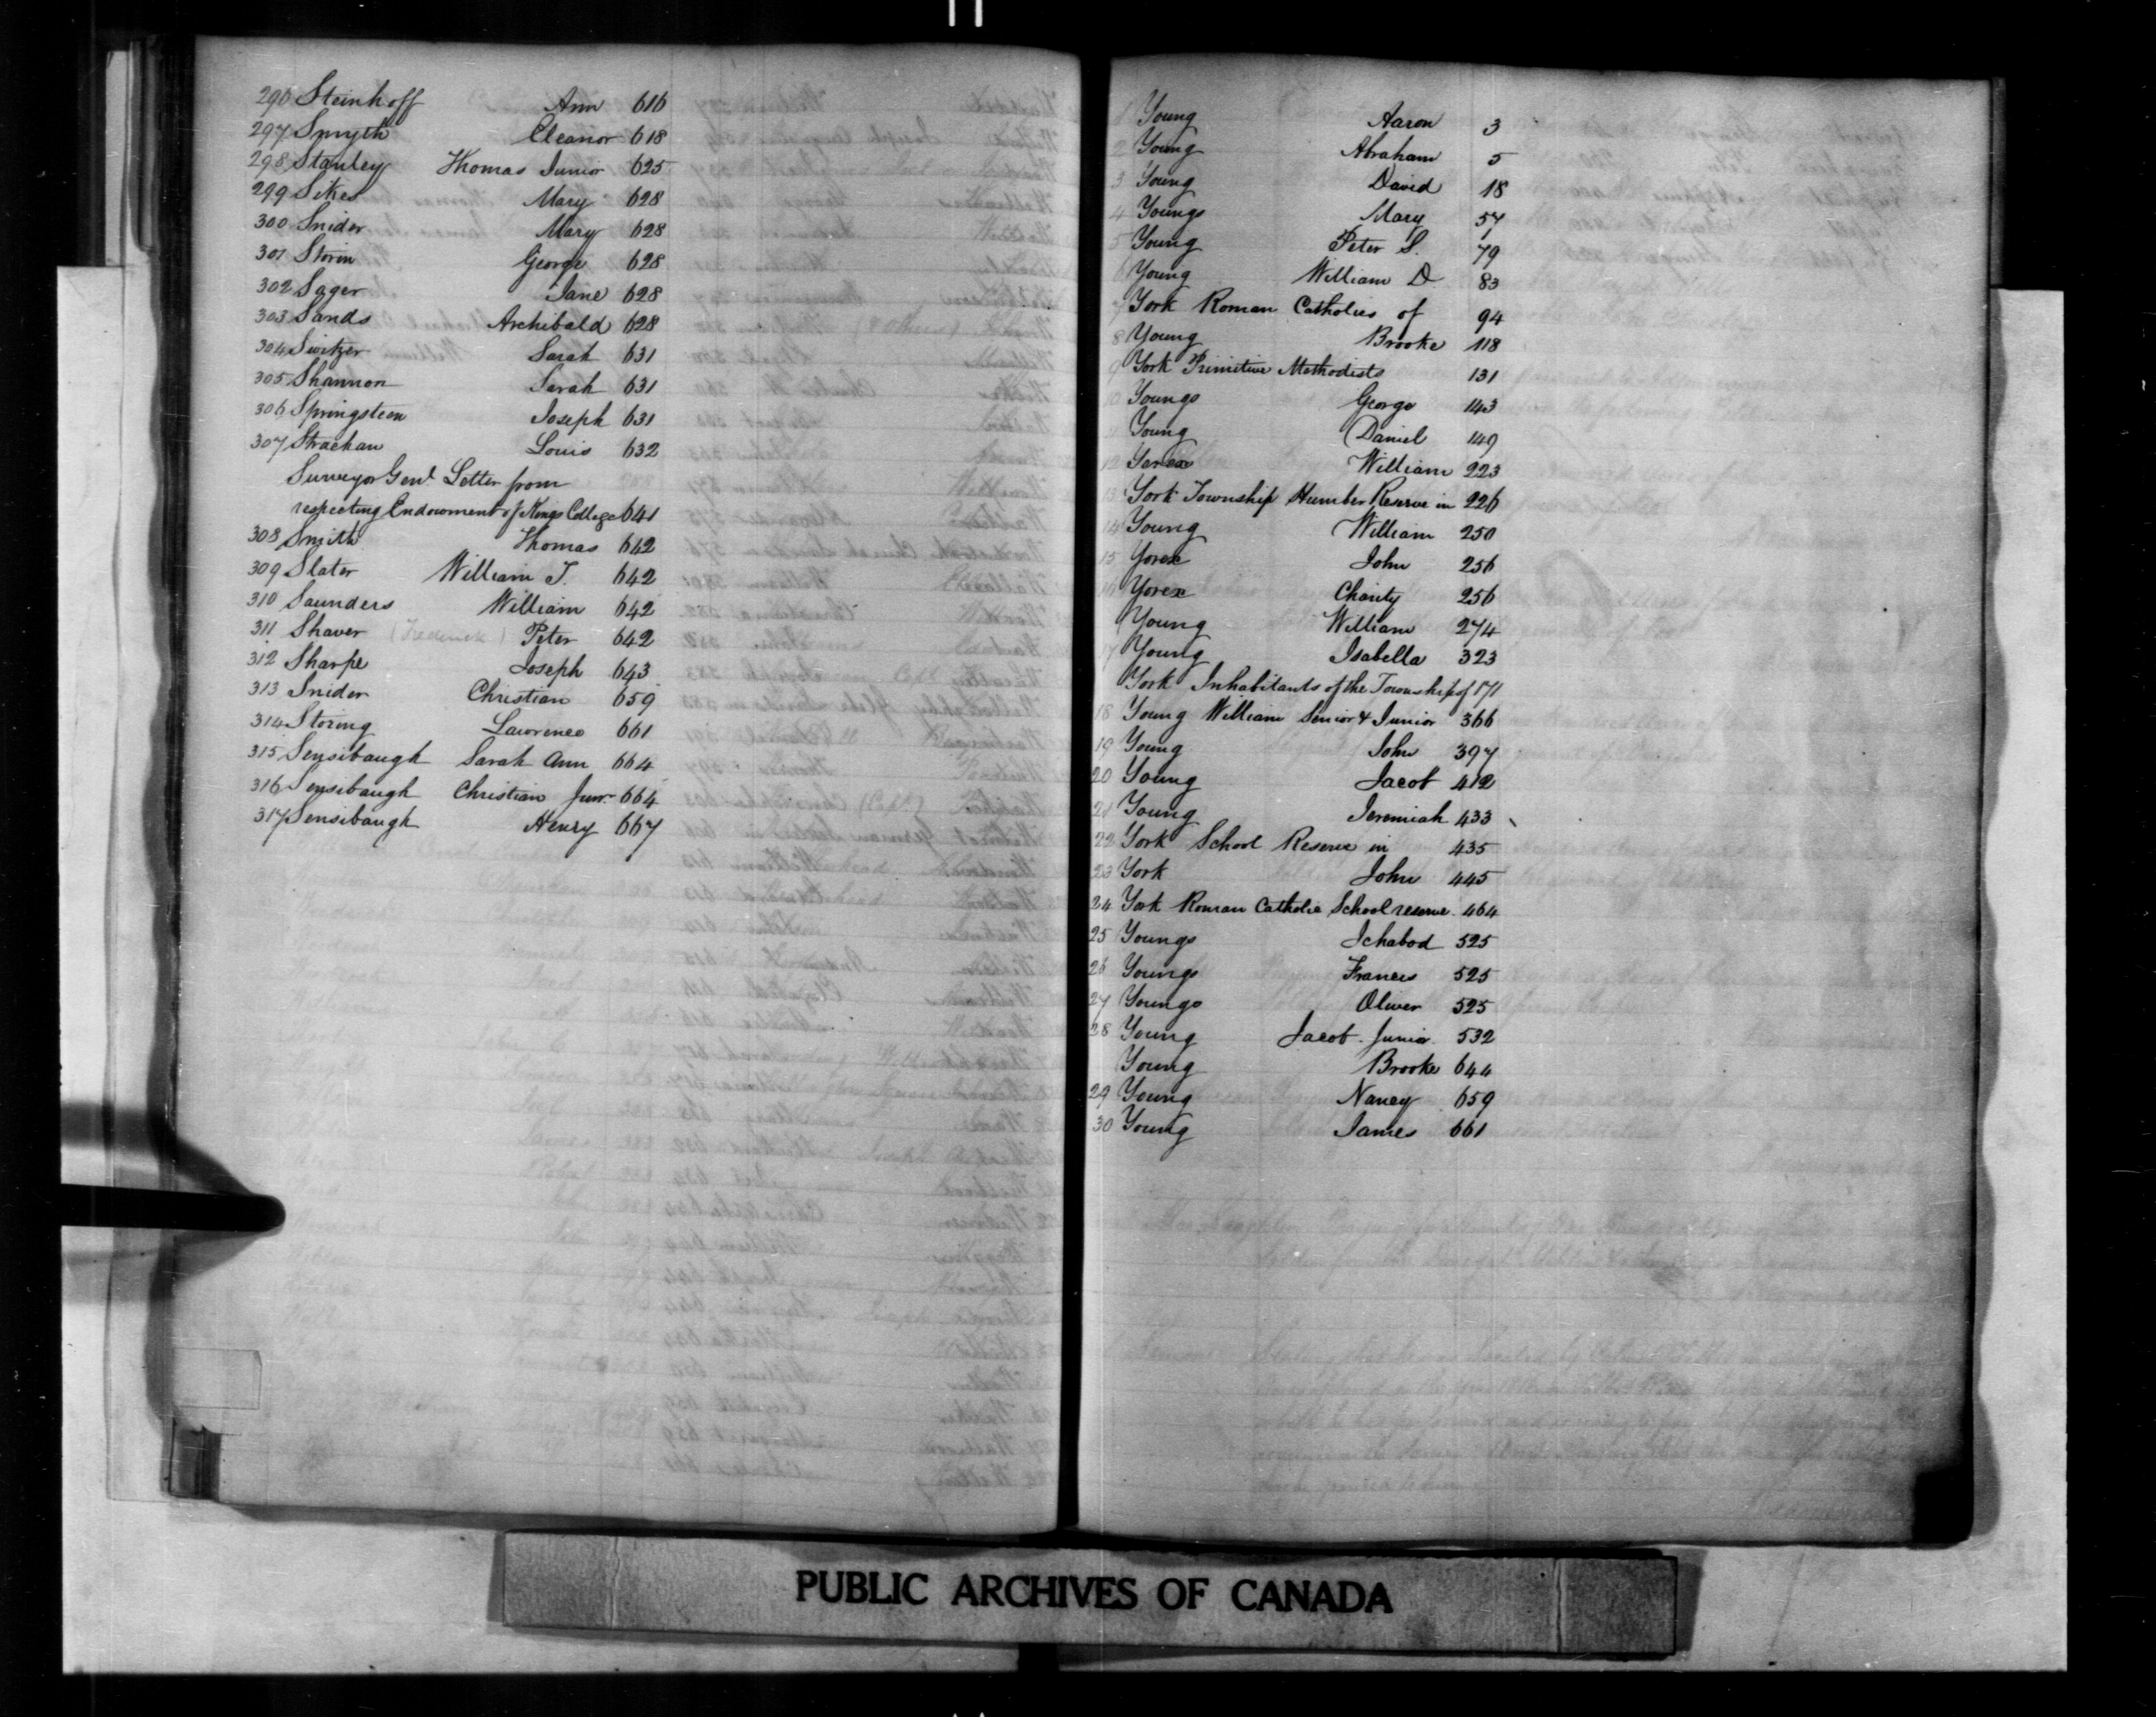 296 Steinhoff Ann 616
297 Smyth Eleanor 618
298 Stanley Thomas Junior 625
299 Sikes Mary 628
300 Snider Mary 628
301 Storin George 628
302 Sager Jane 628
303 Sands Archibald 628
304 Switzer Sarah 631
305 Shannon Sarah 631
306 Springsteen Joseph 631
307 Strachan Louis 632
Surveyor Genl Letter from
respecting Endowment of Kings College 641
308 Smith Thomas 642
309 Slater William T. 642
310 Saunders William 642
311 Shaver (Frederick) Peter 642
312 Sharpe Joseph 643
313 Snider Christian 659
314 Storing Lawrence 661
315 Sensibaugh Sarah Ann 664
316 Sensibaugh Christian Junr 664
317 Sensibaugh Henry 667
1 Young Aaron 3
2 Young Abraham 5
3 Young David 18
4 Youngs Mary 57
5 Young Peter S. 79
6 Young William D 83
7 York Roman Catholics of 94
8 Young Brooke 118
9 York Primitive Methodists 131
10 Youngs George 143
11 Young Daniel 149
12 Yarex William 223
13 York Township Humber Reserve in 226
14 Young William 250
15 Yorex John 256
16 Yorex Charity 256
Young William 274
17 Young Isabella 323
York Inhabitants of the Township of 171
18 Young William Senior & Junior 366
19 Young John 397
20 Young Jacob 412
21 Young Jeremiah 433
22 York School Reserve in 435
23 York John 445
24 York Roman Catholic School reserve 464
25 Youngs Ichabod 525
26 Youngs Frances 525
27 Youngs Oliver 525
28 Young Jacob Junior 532
Young Brooke 644
29 Young Nancy 659
30 Young James 661
PUBLIC ARCHIVES OF CANADA